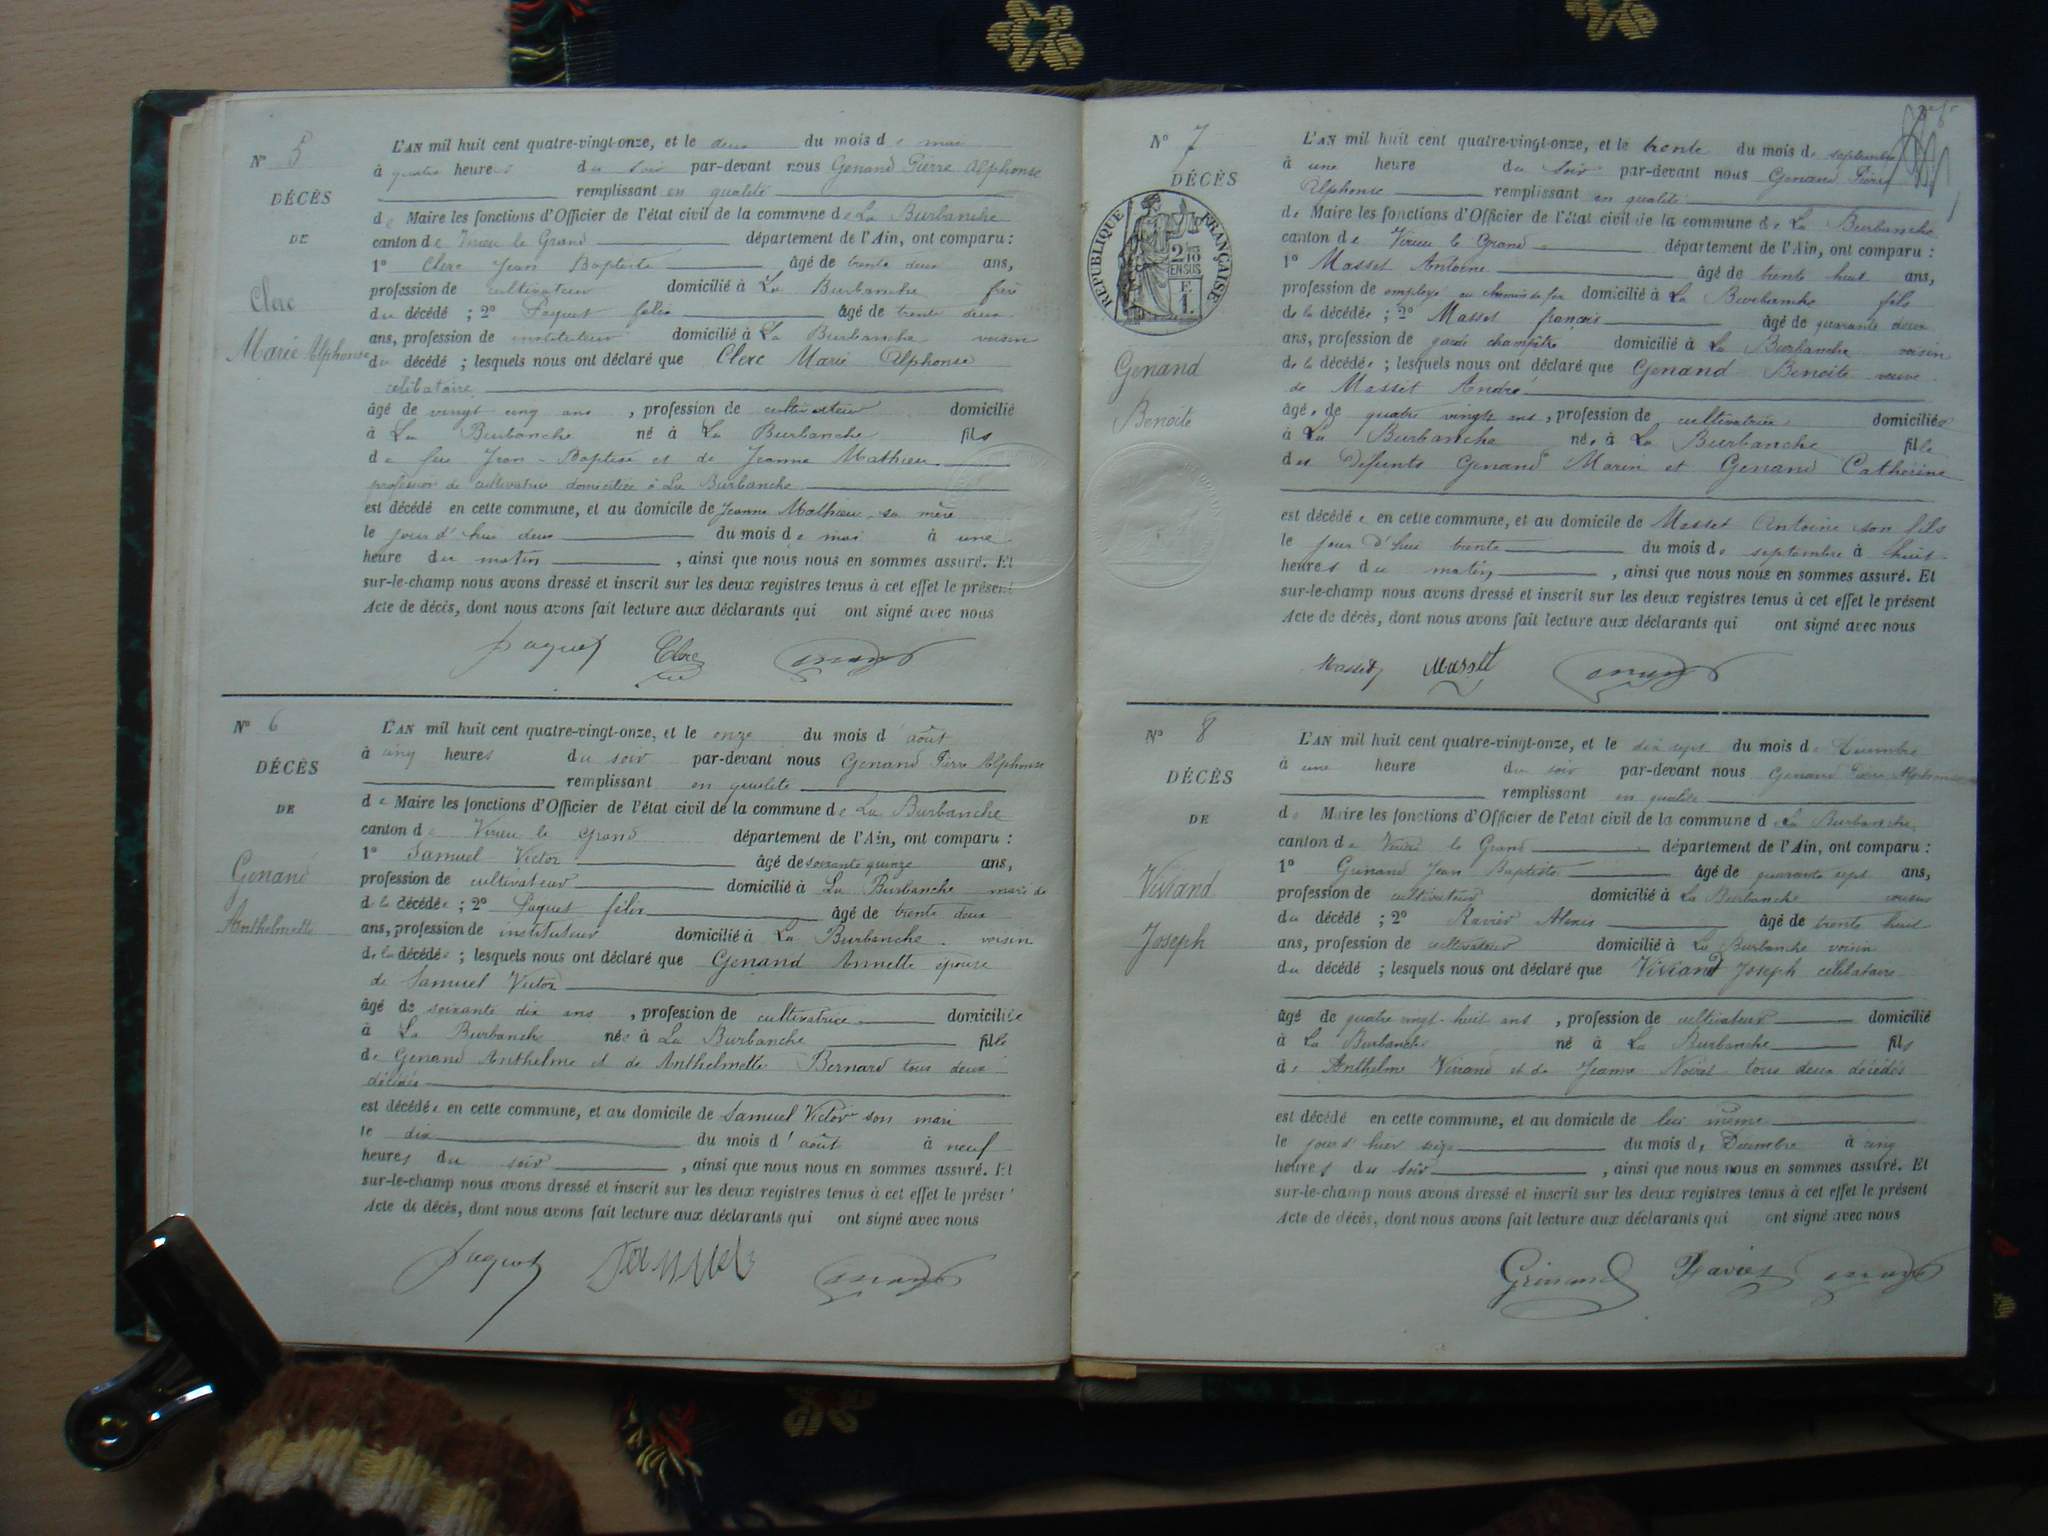 N° 5
DÉCÈS
DE
Clerc
Marie Alphonse
L'AN mil huit cent quatre-vingt-onze, et le deux du mois de mai
à quatre heures du soir par-devant nous Genand Pierre Alphonse
remplissant en qualité
de Maire les fonctions d'Officier de l'état civil de la commune de La Burbanche
canton de Virieu le Grand département de l'Ain, ont comparu :
1° Clerc Jean Baptiste âgé de trente deux ans,
profession de cultivateur domicilié à La Burbanche frère
du décédé ; 2° Paquet félix âgé de trente deux
ans, profession de instituteur domicilié à La Burbanche voisin
du décédé ; lesquels nous ont déclaré que Clerc Marie Alphonse
célibataire
âgé de vingt cinq ans , profession de cultivateur domicilié
à La Burbanche né à La Burbanche fils
de feu Jean-Baptiste et de Jeanne Mathieu
profession de cultivatrice domiciliée à La Burbanche
est décédé en cette commune, et au domicile de Jeanne Mathieu sa mère
le jour d'hui deux du mois de mai à une
heure du matin , ainsi que nous nous en sommes assuré. Et
sur-le-champ nous avons dressé et inscrit sur les deux registres tenus à cet effet le présent
Acte de décès, dont nous avons fait lecture aux déclarants qui ont signé avec nous
Paquet Clerc Genand
N° 6
DÉCÈS
DE
Genand
Anthelmette
L'AN mil huit cent quatre-vingt-onze, et le onze du mois d'août
à cinq heures du soir par-devant nous Genand Pierre Alphonse
remplissant en qualité
de Maire les fonctions d'Officier de l'état civil de la commune de La Burbanche
canton de Virieu le Grand département de l'Ain, ont comparu :
1° Samuel Victor âgé de soixante quinze ans,
profession de cultivateur domicilié à La Burbanche mari de
de la décédée ; 2° Paquet félix âgé de trente deux
ans, profession de instituteur domicilié à La Burbanche voisin
de la décédée ; lesquels nous ont déclaré que Genand Annette épouse
de Samuel Victor
âgé de soixante dix ans , profession de cultivatrice domiciliée
à La Burbanche née à La Burbanche fille
de Genand Anthelme et de Anthelmette Bernard tous deux
décédés
est décédée en cette commune, et au domicile de Samuel Victor son mari
le dix du mois d'août à neuf
heures du soir , ainsi que nous nous en sommes assuré. Et
sur-le-champ nous avons dressé et inscrit sur les deux registres tenus à cet effet le présent
Acte de décès, dont nous avons fait lecture aux déclarants qui ont signé avec nous
Paquet Samuel Genand
N° 7
DÉCÈS
RÉPUBLIQUE FRANÇAISE
2/10 EN SUS
F. 1.
Genand
Benoite
L'AN mil huit cent quatre-vingt-onze, et le trente du mois de septembre
à une heure du soir par-devant nous Genand Pierre
Alphonse remplissant en qualité
de Maire les fonctions d'Officier de l'état civil de la commune de La Burbanche
canton de Virieu le Grand département de l'Ain, ont comparu :
1° Masset Antoine âgé de trente huit ans,
profession de employé au chemin de fer domicilié à La Burbanche fils
de la décédée ; 2° Masset françois âgé de quarante deux
ans, profession de garde champêtre domicilié à La Burbanche voisin
de la décédée ; lesquels nous ont déclaré que Genand Benoite veuve
de Masset André
âgée de quatre vingts ans , profession de cultivatrice domiciliée
à La Burbanche née à La Burbanche fille
des Défunts Genand Marin et Genand Catherine
est décédée en cette commune, et au domicile de Masset Antoine son fils
le jour d'hui trente du mois de septembre à huit
heures du matin , ainsi que nous nous en sommes assuré. Et
sur-le-champ nous avons dressé et inscrit sur les deux registres tenus à cet effet le présent
Acte de décès, dont nous avons fait lecture aux déclarants qui ont signé avec nous
Masset Masset Genand
N° 8
DÉCÈS
DE
Vivrand
Joseph
L'AN mil huit cent quatre-vingt-onze, et le dix sept du mois de Décembre
à une heure du soir par-devant nous Genand Pierre Alphonse
remplissant en qualité
de Maire les fonctions d'Officier de l'état civil de la commune de La Burbanche
canton de Virieu le Grand département de l'Ain, ont comparu :
1° Grinand Jean Baptiste âgé de quarante sept ans,
profession de cultivateur domicilié à La Burbanche voisin
du décédé ; 2° Ravier Alexis âgé de trente huit
ans, profession de cultivateur domicilié à La Burbanche voisin
du décédé ; lesquels nous ont déclaré que Joseph célibataire
âgé de quatre vingt-huit ans , profession de cultivateur domicilié
à La Burbanche né à La Burbanche fils
de Anthelme et de Jeanne tous deux décédés
est décédé en cette commune, et au domicile de lui même
le jour d'hier seize du mois de Décembre à cinq
heures du soir , ainsi que nous nous en sommes assuré. Et
sur-le-champ nous avons dressé et inscrit sur les deux registres tenus à cet effet le présent
Acte de décès, dont nous avons fait lecture aux déclarants qui ont signé avec nous
Grinand Ravier Genand